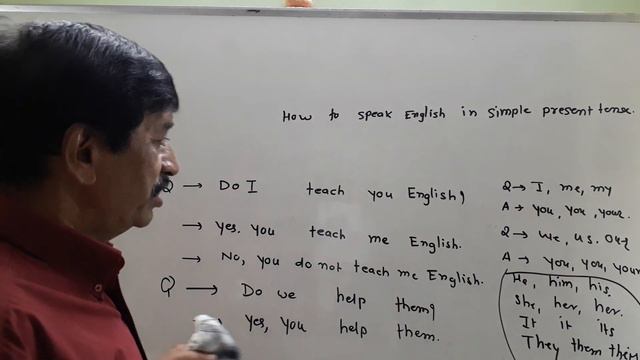 How to speak English in simple present tense.
Q → Do I teach you English?
→ Yes. you teach me English.
→ No, you do not teach me English.
Q → Do we help them?
Yes, you help them.
Q → I, me, my
A → you, you, your.
Q → we, us. Our
A → you, you, your
He, him, his.
She, her, her.
It it its
They them their